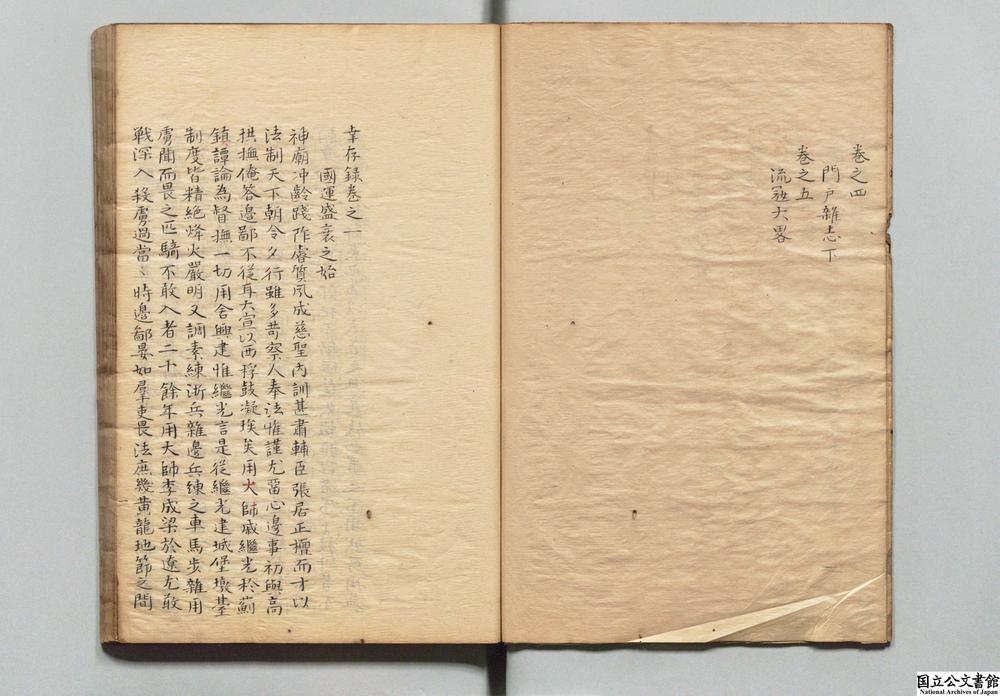 卷之四
門戸雜志下
卷之五
流㓂大畧
幸存録卷之一
國運盛衰之始
神廟冲齡踐阼睿質夙成慈聖內訓甚肅輔臣張居正擅而才以
法制天下朝令夕行雖多苛察人奉法惟謹尤畱心邊事初與高
拱撫俺答邊鄙不從耳大宣以西桴鼓凝埃矣用大師戚繼光於薊
鎮譚論為督撫一切用舍興建惟繼光言是従繼光建城堡墩䑓
制度皆精絶烽火嚴明又調素練浙兵雜邊兵練之車馬步雜用
虜聞而畏之匹騎不敢入者二十餘年用大師李成梁於遼尤敢
戦深入殺虜過當〻時邊鄙晏如羣吏畏法庶幾黄龍地節之間
国立公文書館
National Archives of Japan